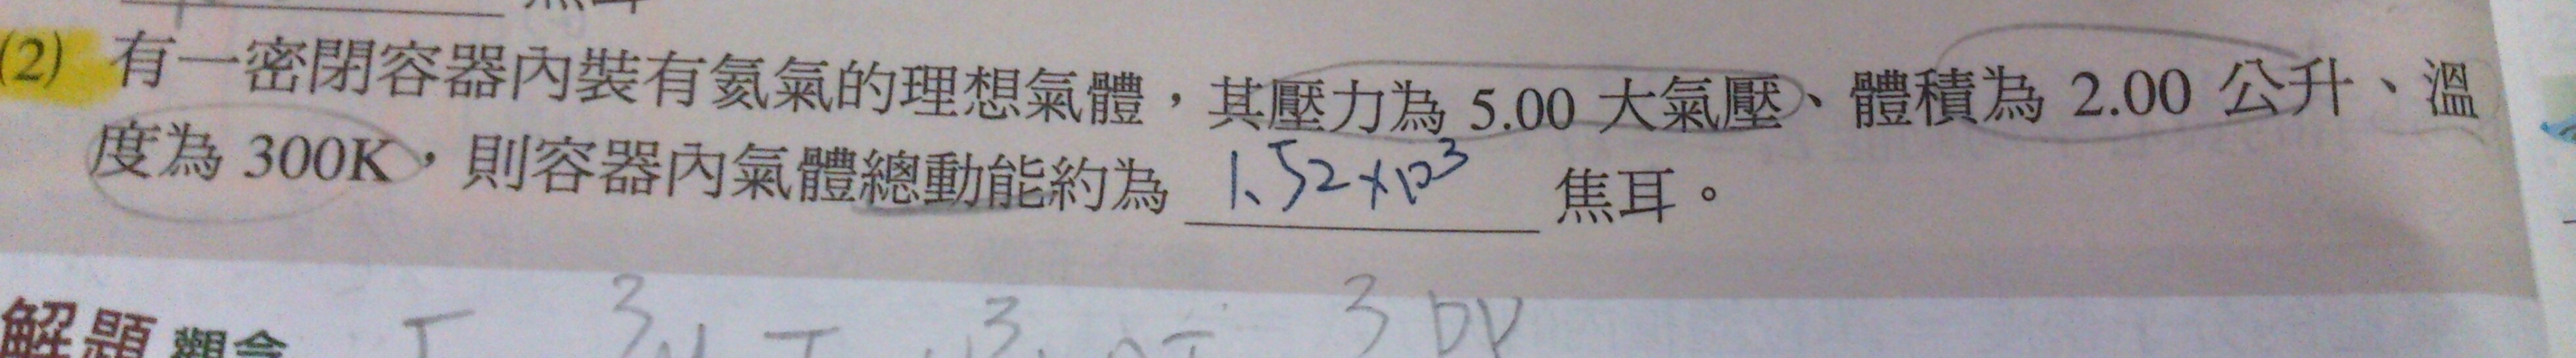 (2) 有一密閉容器內裝有氦氣的理想氣體，其壓力為 5.00 大氣壓、體積為 2.00 公升、溫
度為 300K，則容器內氣體總動能約為 1.52×10³ 焦耳。
解題 觀念